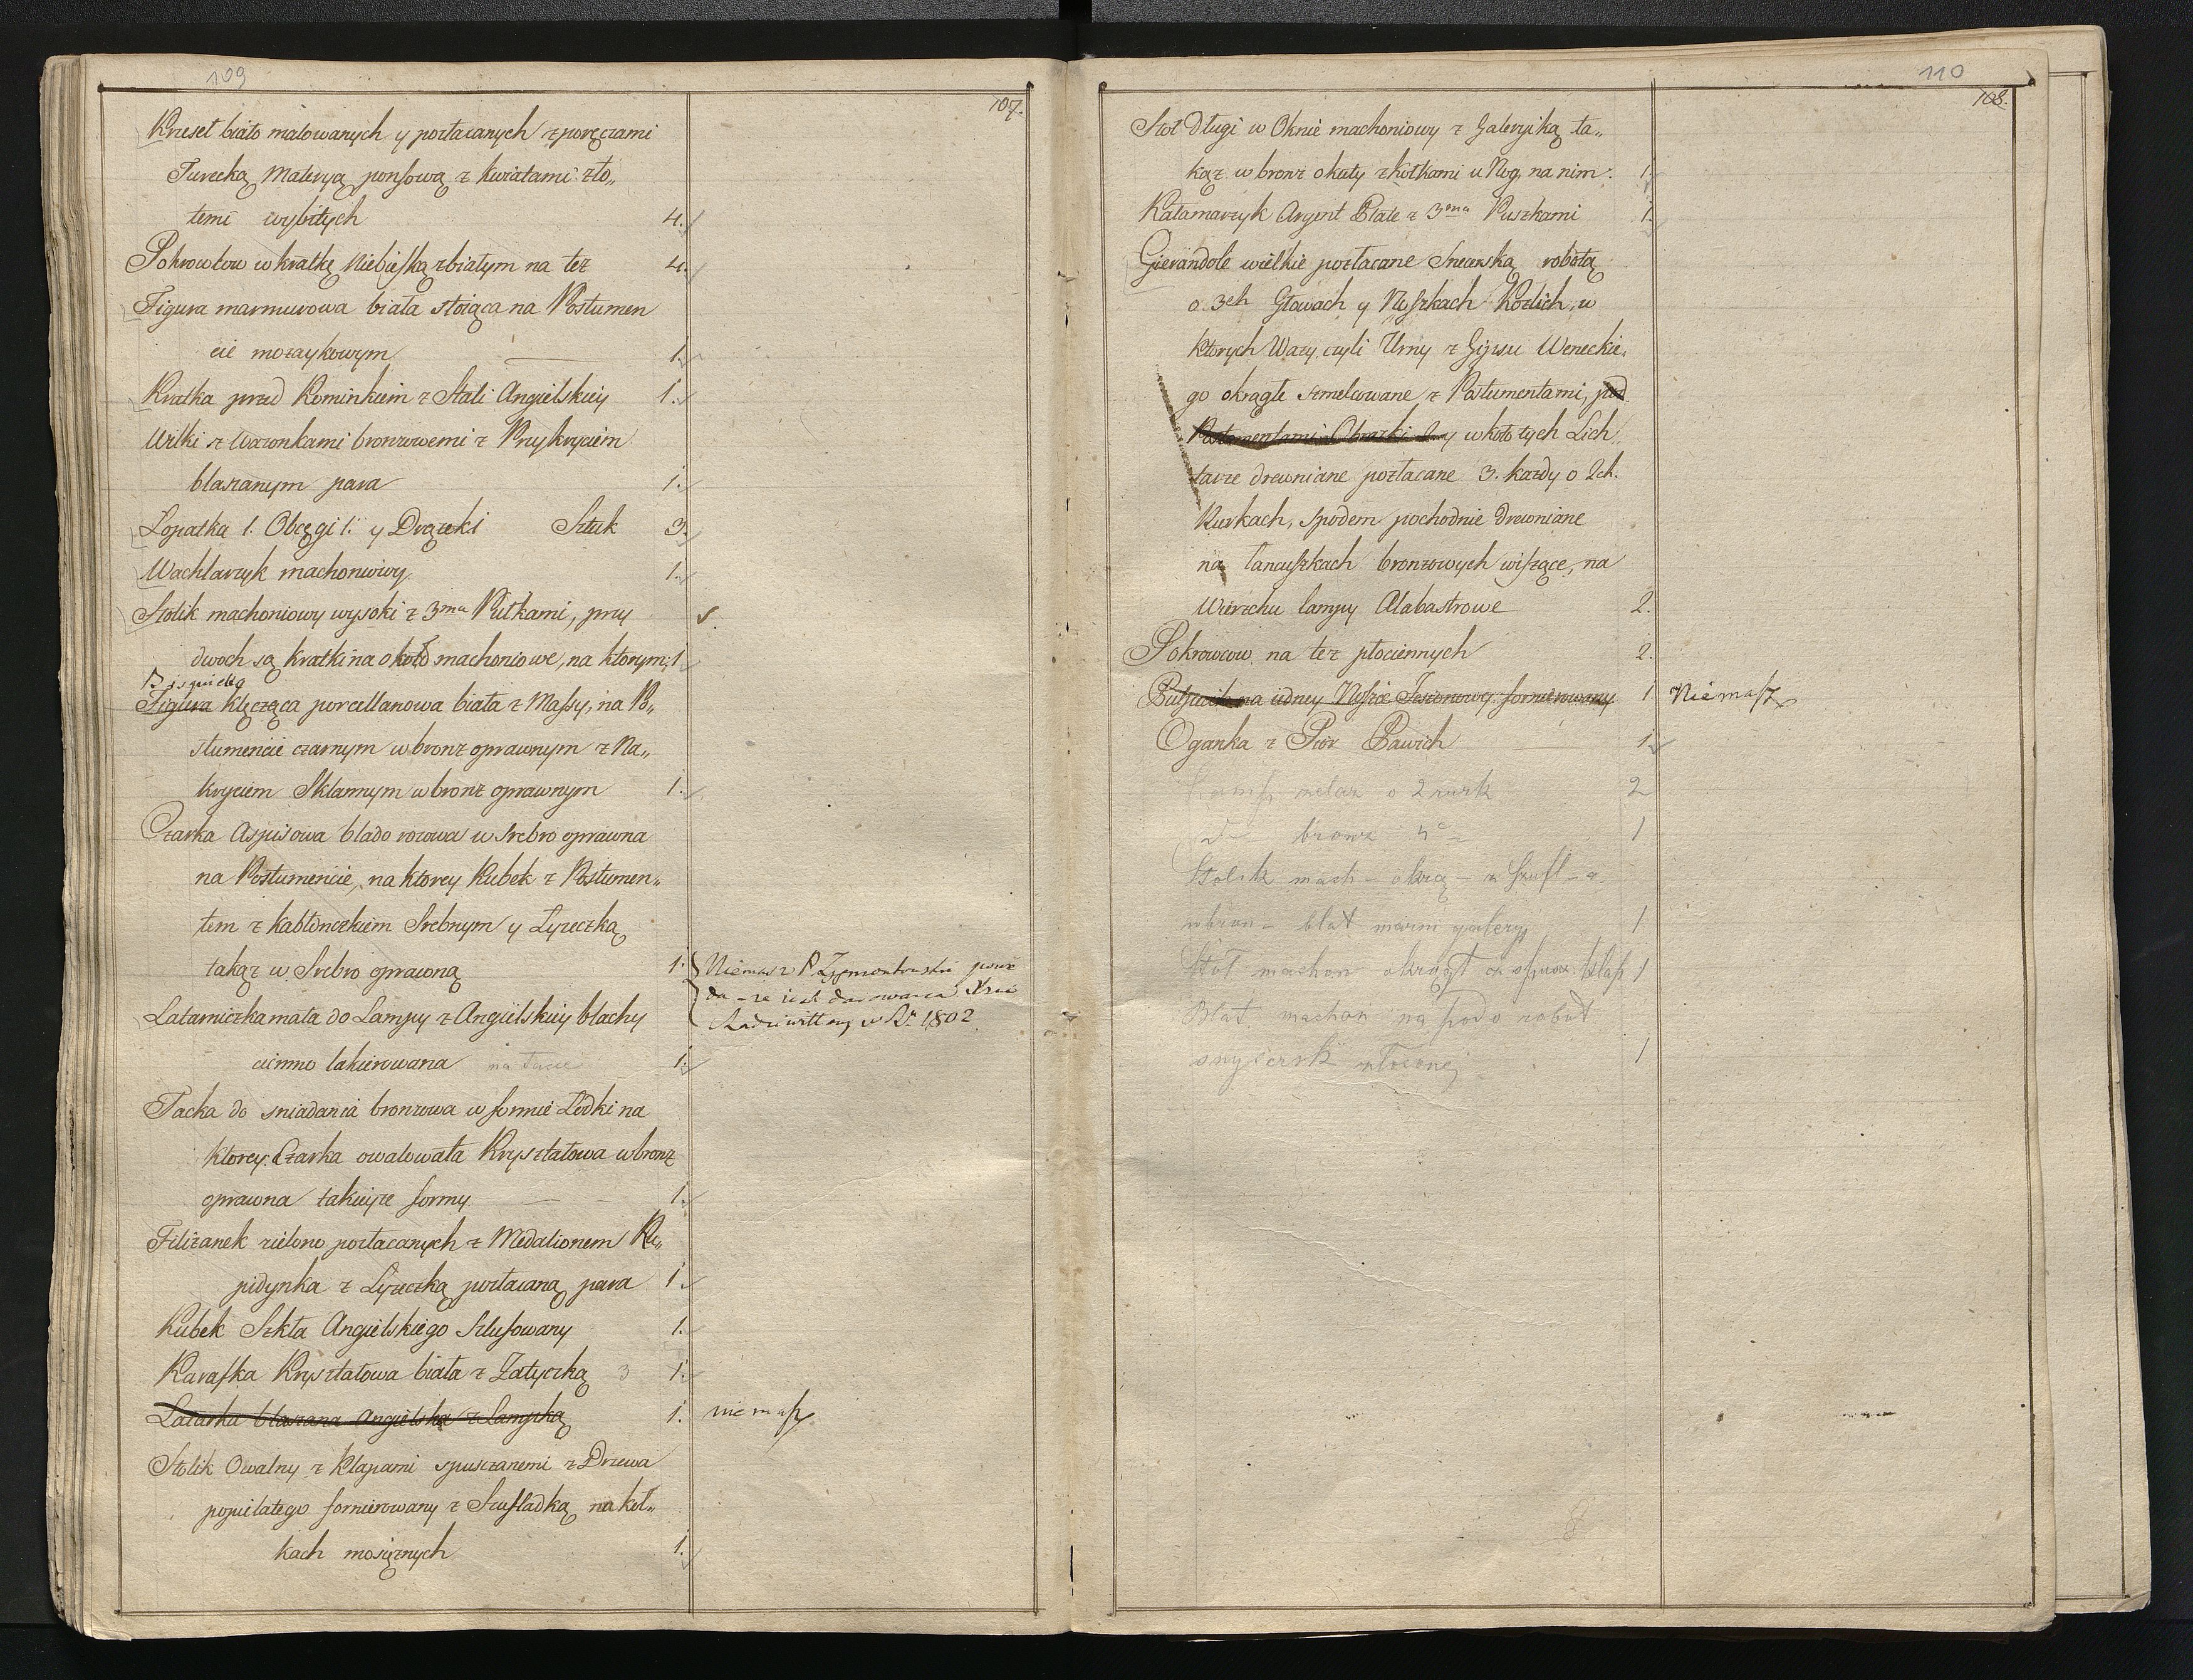 109
107.
Krzeseł biało malowanych y pozłacanych z poręczami
Turecką Materyą ponsową z kwiatami zło„
temi wybitych 4.
Pokrowców w kratkę Niebieską z białym na też 4.
Figura marmurowa biała stoiąca na Postumen
cie mozaykowym 1.
Kratka przed Kominkiem z Stali Angielskiey 1.
Wilki z Wazonkami bronzowemi z Przykryciem
blaszanym para 1.
Łopatka 1. Obcęgi 1. y Drążki Sztuk 3.
Wachlarzyk machoniowy 1.
Stolik machoniowy wysoki z 3ma Pułkami, przy
dwoch są kratki na około machoniowe, na ktorym 1
Figura klęcząca porcellanowa biała z Massy, na Po„
stumencie czarnym w bronz oprawnym z Na„
kryciem Sklannym w bronz oprawnym 1.
Czarka Aspisowa blado rozowa w Srebro oprawna
na Postumencie, na ktorey Kubek z Postumen„
tem z kabłonczkiem Srebnym y Łyzeczką
takąż w Srebro oprawną 1. Niemasz P. Zygmontowski powie
da - ze iest darowana Xzni
Radziwiłłowy w R. 1802
Latarniczka mała do Lampy z Angielskiey blachy
ciemno lakierowana na 1.
Tacka do sniadania bronzowa w formie Łodki na
ktorey Czarka owalowata Kryształowa w bronz
oprawna takieyże formy 1.
Filiżanek zielono pozłacanych z Medalionem Ku„
pidynka z Łyżeczką pozłacaną para 1.
Kubek Szkła Angielskiego Szlufowany 1.
Karafka Kryształowa biała z Zatyczką 3 1.
Latarka blaszana Angielska z Lampką 1. nie masz
Stolik Owalny z Klapami spuszczanemi z Drzewa
popielatego fornierowany z Szufladką na koł„
kach mosiężnych 1.
110
108.
Stoł Długi w Oknie machoniowy z Galeryiką ta„
kąż w bronz okuty z kołkami u Nog, na nim 1.
Kałamarzyk Argent Plate z 3ma Puszkami 1.
Gierandole wielkie pozłacane Snycerską robotą
o 3ch Głowach y Noszkach Kozlich, w
ktorych Wazy, czyli Urny z Gipsu Weneckie„
go okrągłe szmelcowane z Postumentami, pod
Postumentami Obrazki y w koło tych Lich„
tarze drewniane pozłacane 3. kazdy o 2ch.
Rurkach, spodem pochodnie drewniane
na łancuszkach bronzowych wiszące, na
Wierzchu lampy Alabastrowe 2.
Pokrowcow na też płociennych 2.
na iedney Nosze Jesionowey fornierowany 1 Nie masz
Oganka z Pior Pawich 1.
o 2 rurk 2
bronz 1
Stolik mach - okrą - z Szufl -
w bron - blat marm galery 1
Stoł machon okrągł 1
Blat machon na robot
snycersk złoconey 1